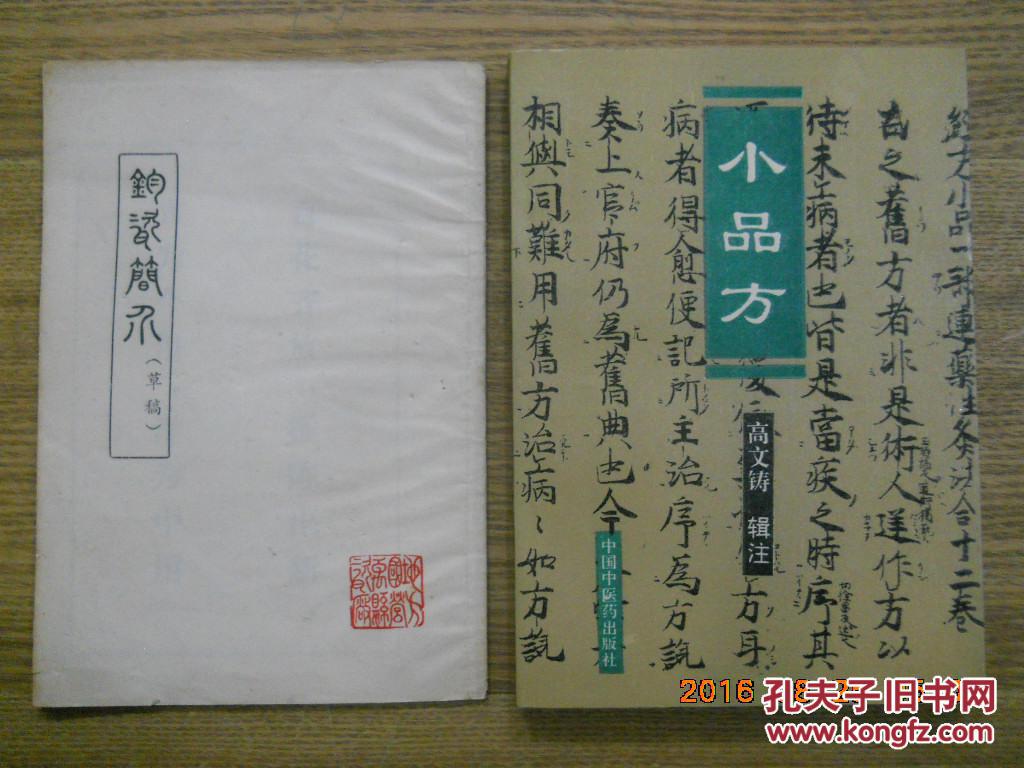 鈞瓷簡介
（草稿）
小品方
高文铸 辑注
中国中医药出版社
經方小品一部連藥性灸法合十二卷
古之舊方者非是術人逆作方以
待未病者也皆是當疾之時序其
方身
病者得愈便記所主治序為方說
奏上官府仍為舊典也今
相與同難用舊方治病〻如方說
2016
孔夫子旧书网
www.kongfz.com